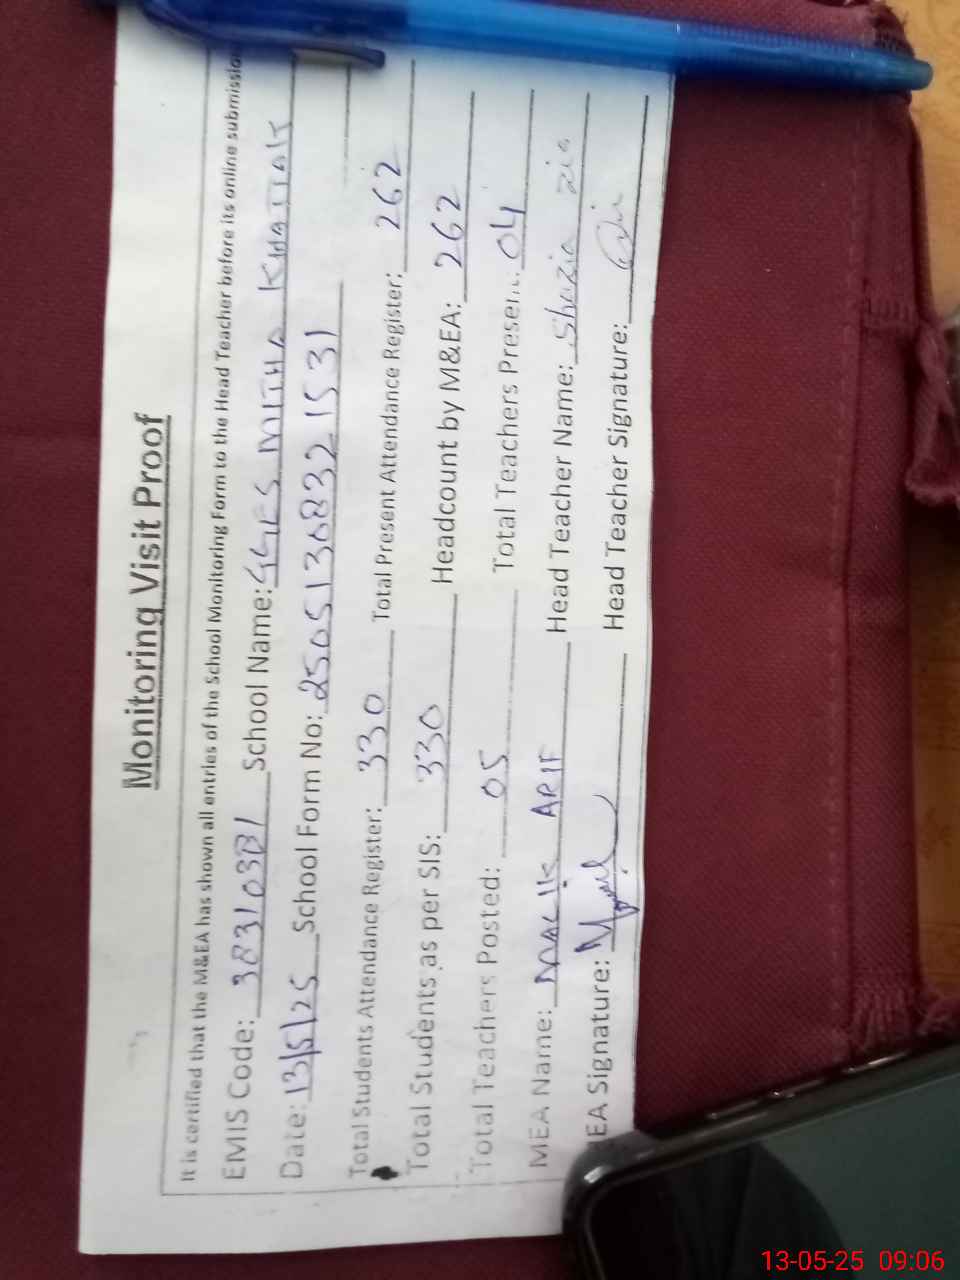 Monitoring Visit Proof
It is certified that the M&EA has shown all entries of the School Monitoring Form to the Head Teacher before its online submission
EMIS Code: 38310381 School Name: GGES MITHA KHATTAK
Date: 13/5/25 School Form No: 2505130832 1531
Total Students Attendance Register: 330 Total Present Attendance Register: 262
Total Students as per SIS: 330 Headcount by M&EA: 262
Total Teachers Posted: 05 Total Teachers Present: 04
MEA Name: MALIK ARIF Head Teacher Name: Shazia zia
EA Signature: Head Teacher Signature:
13-05-25 09:06